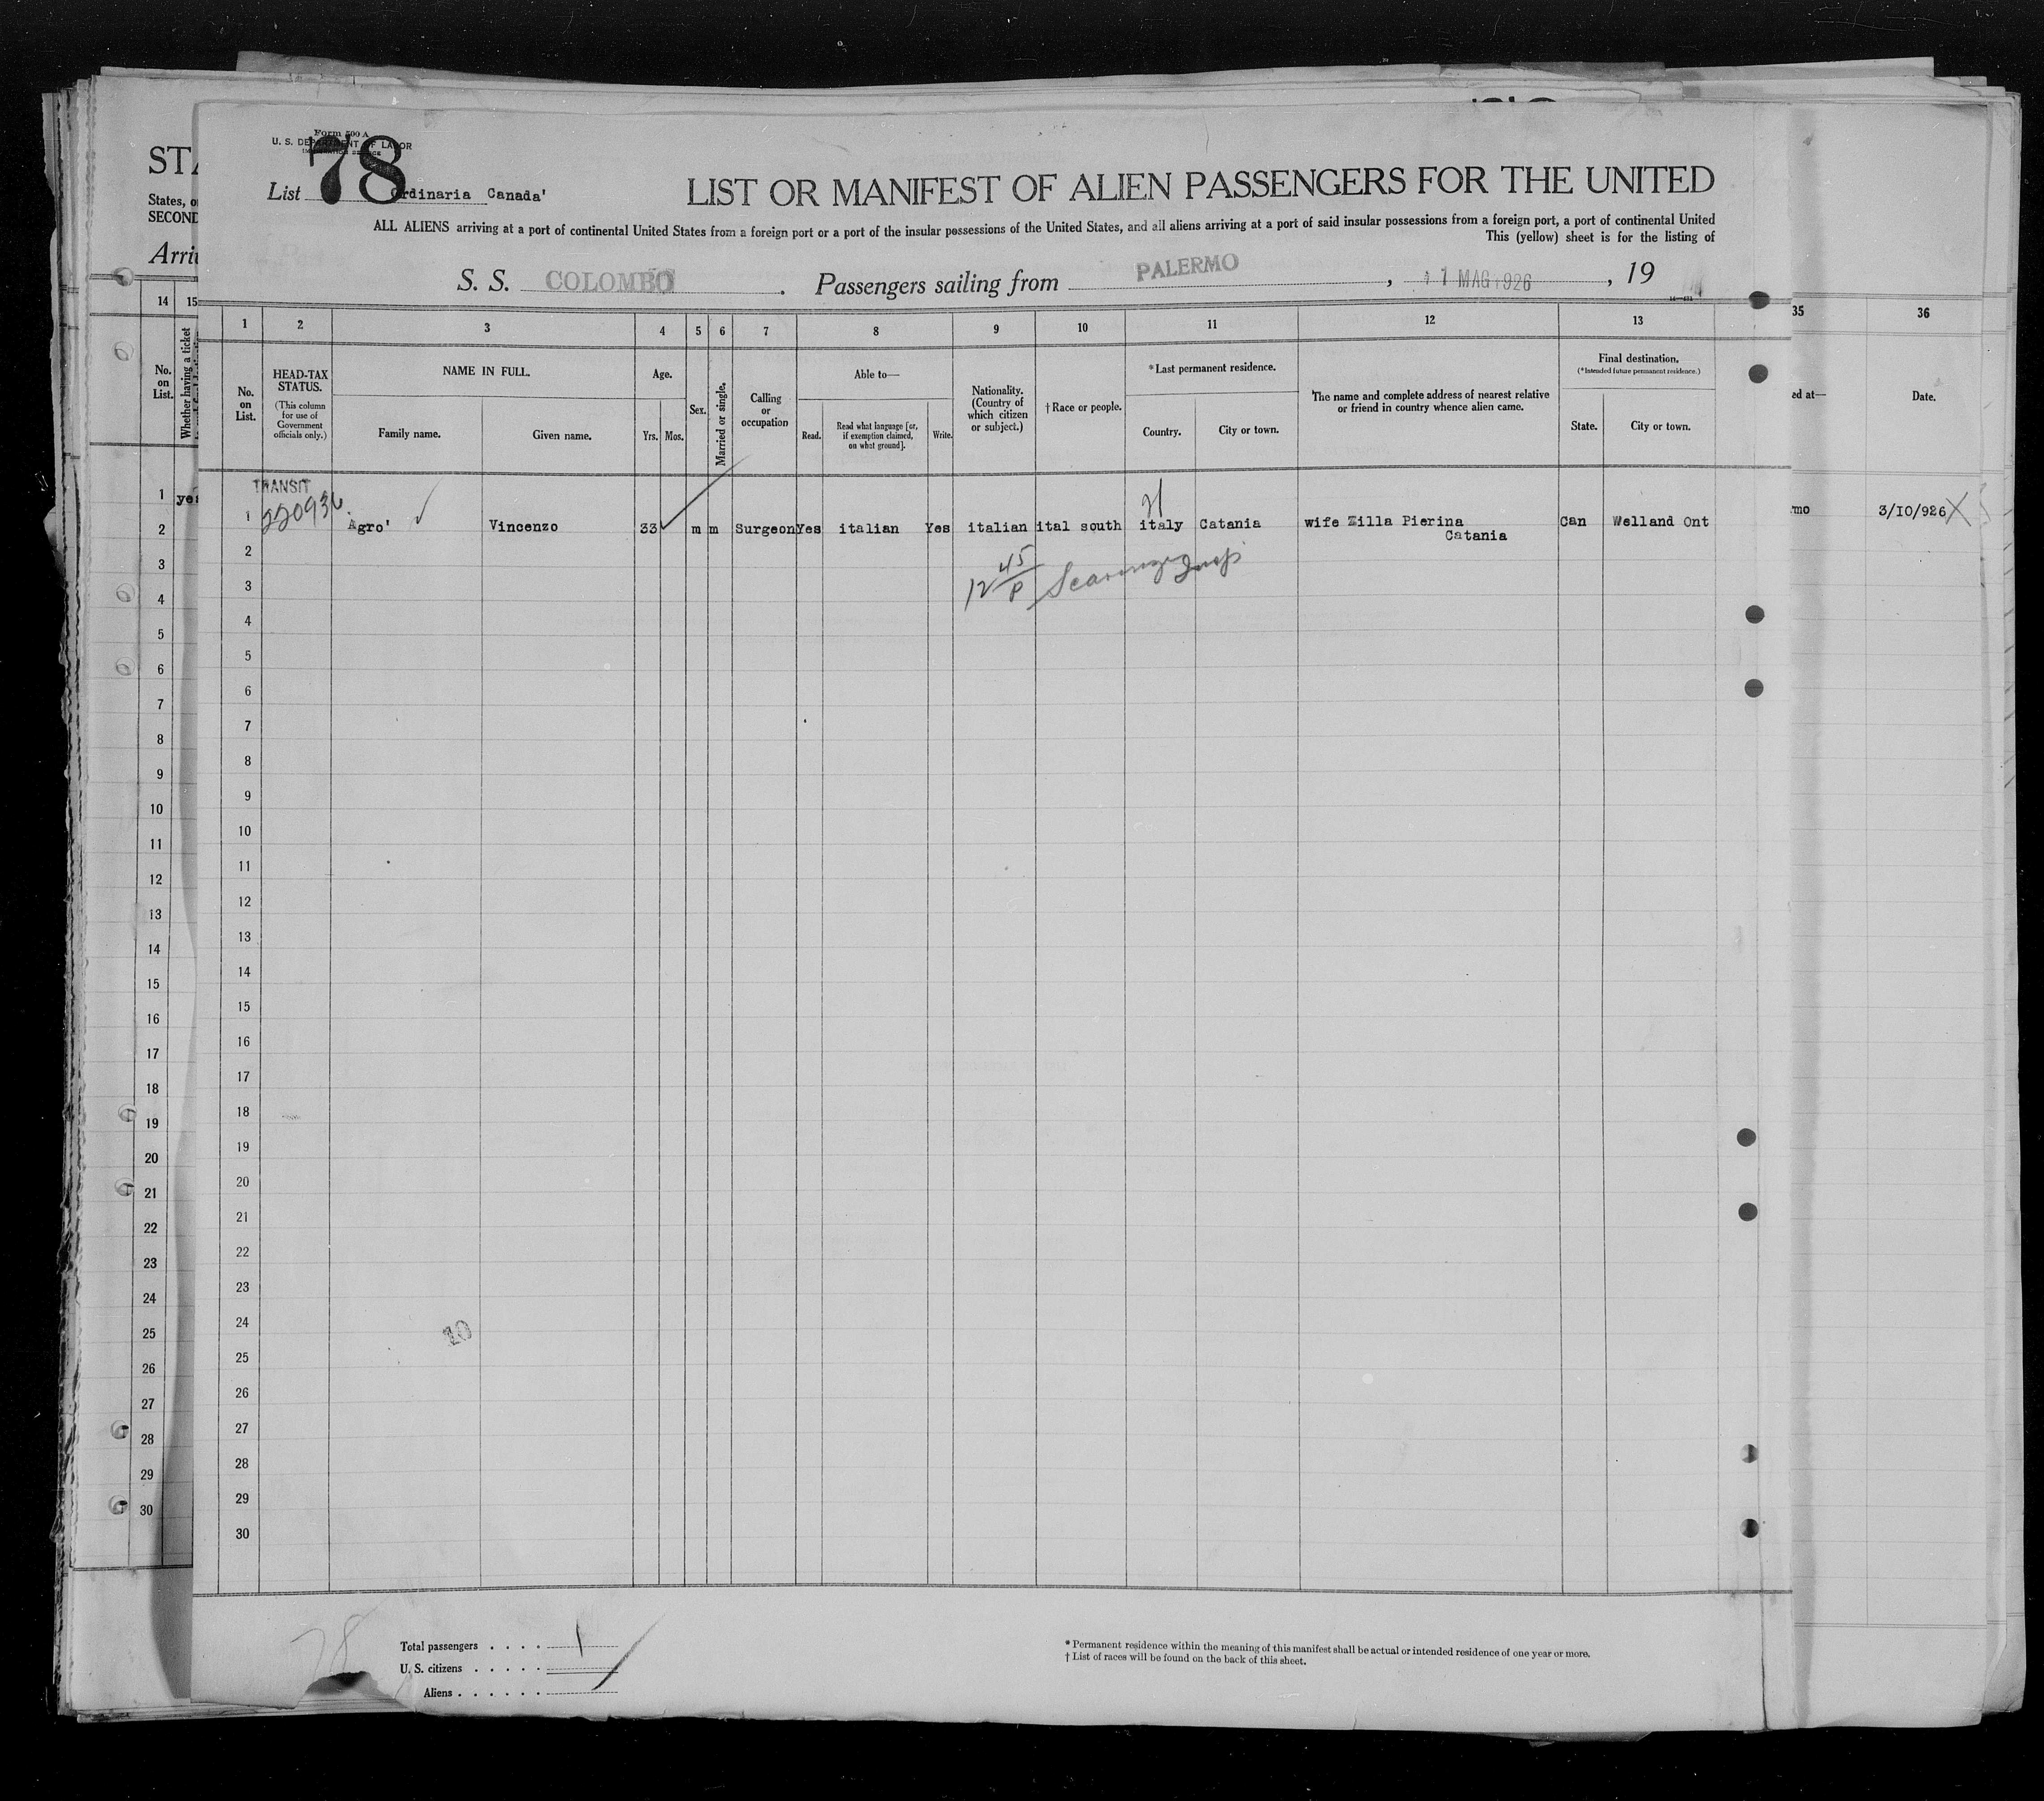 Form 500 A
U. S. DEPARTMENT OF LABOR
IMMIGRATION SERVICE
78
List Ordinaria Canada'
LIST OR MANIFEST OF ALIEN PASSENGERS FOR THE UNITED
ALL ALIENS arriving at a port of continental United States from a foreign port or a port of the insular possessions of the United States, and all aliens arriving at a port of said insular possessions from a foreign port, a port of continental United
This (yellow) sheet is for the listing of
S. S. COLOMBO . Passengers sailing from PALERMO , 1 MAG 1926 , 19
STA
States, o
SECOND
Arri
14 15
No. on List.
Whether having a ticket
1 2 3 4 5 6 7 8 9 10 11 12 13
35 36
No. on List.
HEAD-TAX STATUS.
(This column for use of Government officials only.)
NAME IN FULL.
Family name.
Given name.
Age.
Yrs. Mos.
Sex.
Married or single.
Calling or occupation
Able to—
Read.
Read what language [or, if exemption claimed, on what ground].
Write.
Nationality. (Country of which citizen or subject.)
† Race or people.
* Last permanent residence.
Country.
City or town.
The name and complete address of nearest relative or friend in country whence alien came.
Final destination.
(* Intended future permanent residence.)
State.
City or town.
ed at—
Date.
TRANSIT
220936
1 yes
1 Agro' Vincenzo 33 m m Surgeon Yes italian Yes italian ital south italy Catania wife Zilla Pierina Can Welland Ont
Catania
mo 3/10/926 X
12 45/P
2
3
4
5
6
7
8
9
10
11
12
13
14
15
16
17
18
19
20
21
22
23
24
25
26
27
28
29
30
2
3
4
5
6
7
8
9
10
11
12
13
14
15
16
17
18
19
20
21
22
23
24
25
26
27
28
29
30
10
78
Total passengers . . . . 1
U. S. citizens . . . . .
Aliens . . . . . .
* Permanent residence within the meaning of this manifest shall be actual or intended residence of one year or more.
† List of races will be found on the back of this sheet.